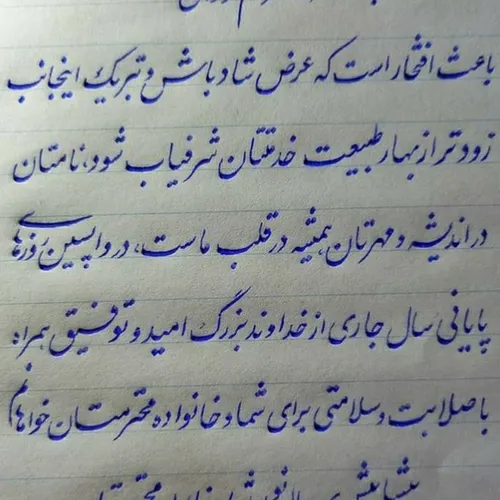 باعث افتخار است که عرض شادباش و تبریک اینجانب
زودتر از بهار طبیعت خدمتتان شرفیاب شود، نامتان
در اندیشه و مهرتان همیشه در قلب ماست، در واپسین روزهای
پایانی سال جاری از خداوند بزرگ امید و توفیق همراه
با صلابت و سلامتی برای شما و خانواده محترمتان خواهانم